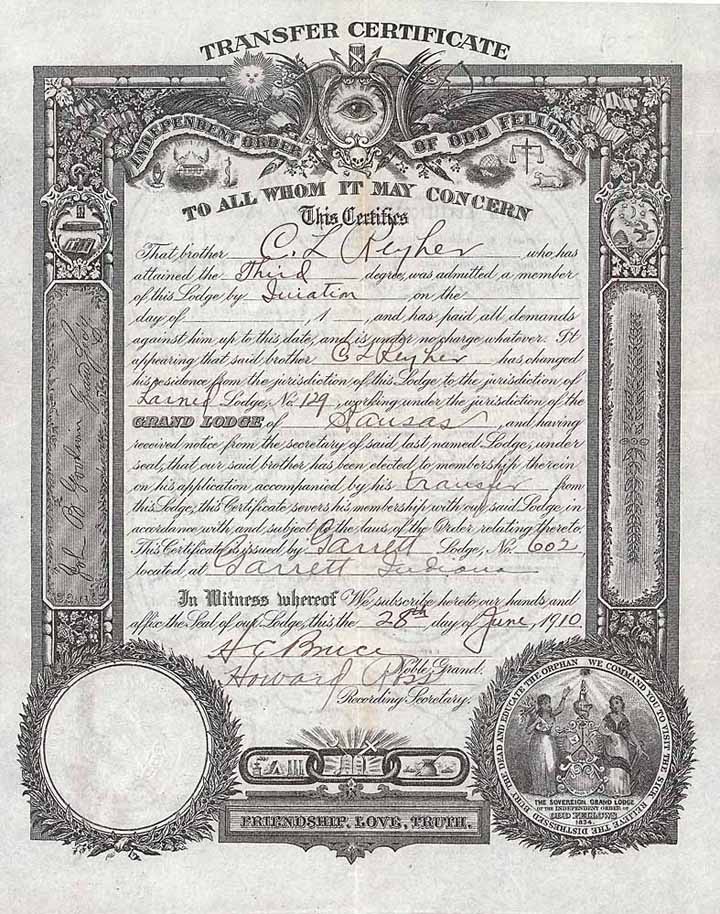 TRANSFER CERTIFICATE
INDEPENDENT ORDER OF ODD FELLOWS
TO ALL WHOM IT MAY CONCERN
This Certifies
That brother C. L. Keyher who has
attained the Third degree, was admitted a member
of this Lodge by Iniation on the
day of , 1 , and has paid all demands
against him up to this date, and is under no charge whatever. It
appearing that said brother C L Keyher has changed
his residence from the jurisdiction of this Lodge to the jurisdiction of
Larned Lodge, No. 129, working under the jurisdiction of the
GRAND LODGE of Kansas, and having
received notice from the secretary of said last named Lodge, under
seal, that our said brother has been elected to membership therein
on his application accompanied by his transfer from
this Lodge, this Certificate severs his membership with our said Lodge, in
accordance with and subject to the laws of the Order relating thereto.
This Certificate is issued by Garrett Lodge, No. 602,
located at Garrett Indiana
In Witness whereof We subscribe hereto our hands and
affix the Seal of our Lodge, this the 28th day of June, 1910.
H C Bruce
Noble Grand.
Howard Ross
Recording Secretary.
Grand Secy
FRIENDSHIP, LOVE, TRUTH.
WE COMMAND YOU TO VISIT THE SICK RELIEVE THE DISTRESSED BURY THE DEAD AND EDUCATE THE ORPHAN
THE SOVEREIGN GRAND LODGE
OF THE INDEPENDENT ORDER OF
ODD FELLOWS
1834